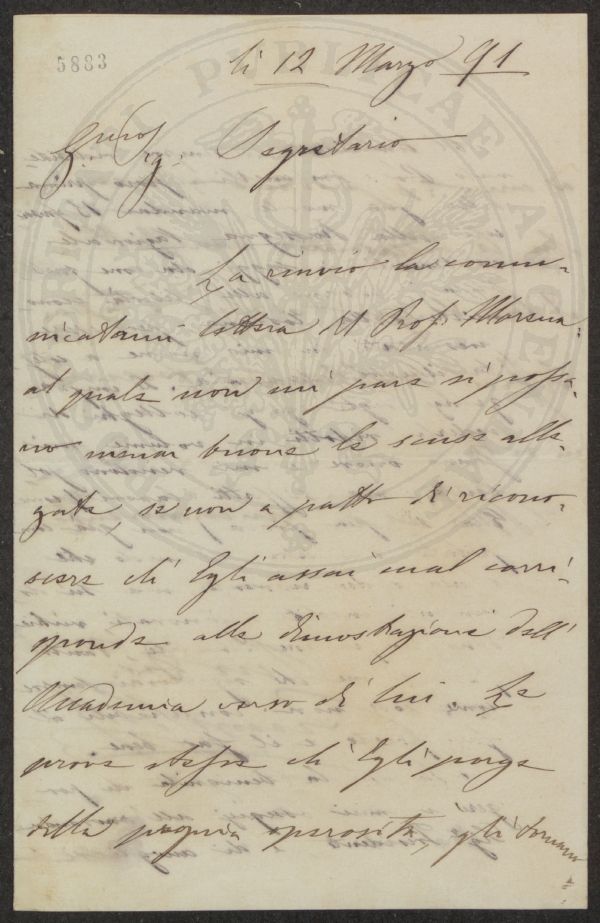 5883
li 12 Marzo 91
Sig. Segretario
La rinvio la comu-
nicatami lettera del Prof. Morsua
al quale non mi pare si possa-
no menar buone le scuse alle-
gate, se non a patto di ricono-
scere ch'Egli assai mal corri-
sponde alle dimostrazioni dell'
Accademia verso di lui. Le
prove stesse ch'Egli porge
della propria operosità, gli tornano